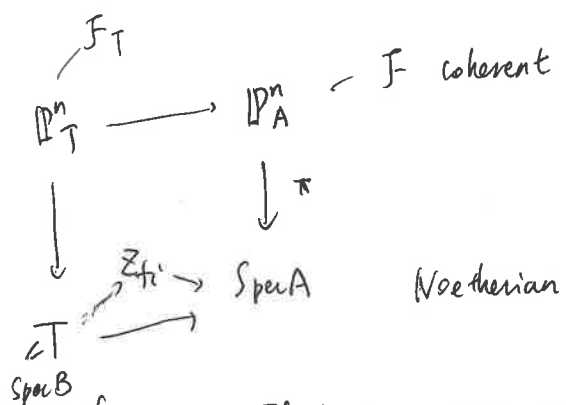 F_T
ℙ^n_T ℙ^n_A F coherent
π
Z_{fi} Spec A Noetherian
T
Spec B